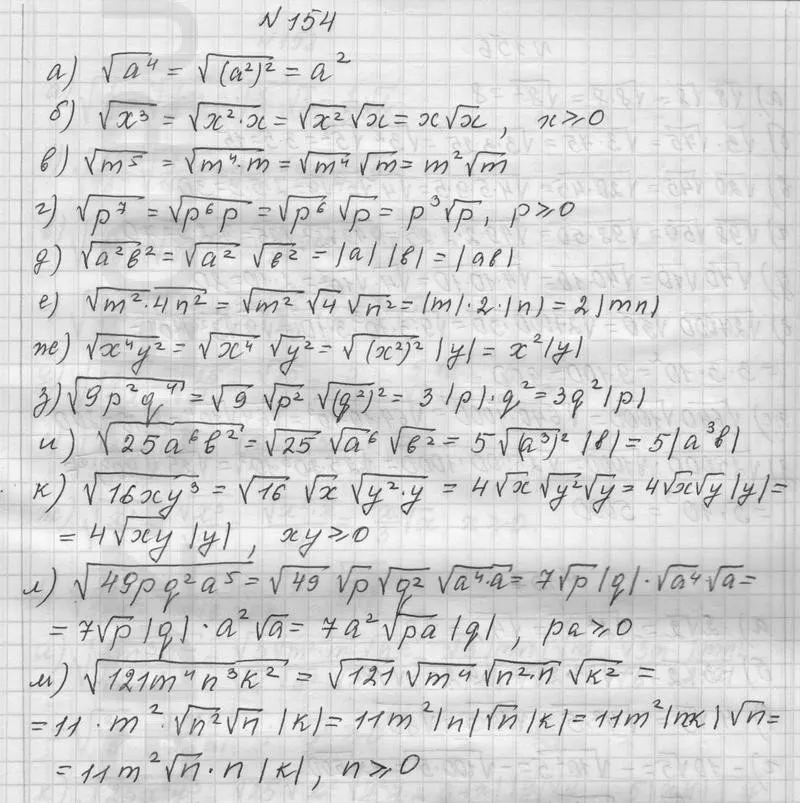 N 154
а) √a⁴ = √(a²)² = a²
б) √x³ = √x²·x = √x² √x = x√x, x ≥ 0
в) √m⁵ = √m⁴·m = √m⁴ √m = m²√m
г) √p⁷ = √p⁶p = √p⁶ √p = p³√p, p ≥ 0
д) √a²b² = √a² √b² = |a| |b| = |ab|
е) √m²·4n² = √m² √4 √n² = |m|·2·|n| = 2|mn|
ж) √x⁴y² = √x⁴ √y² = √(x²)² |y| = x²|y|
з) √9p²q⁴ = √9 √p² √(q²)² = 3|p|·q² = 3q²|p|
и) √25a⁶b² = √25 √a⁶ √b² = 5√(a³)² |b| = 5|a³b|
к) √16xy³ = √16 √x √y²·y = 4√x √y² √y = 4√x√y |y| =
= 4√xy |y|, xy ≥ 0
л) √49pq²a⁵ = √49 √p √q² √a⁴·a = 7√p |q|·√a⁴ √a =
= 7√p |q|·a²√a = 7a²√pa |q|, pa ≥ 0
м) √121m⁴n³k² = √121 √m⁴ √n²·n √k² =
= 11·m²·√n² √n |k| = 11m²|n|√n |k| = 11m²|nk|√n =
= 11m²√n·n|k|, n ≥ 0